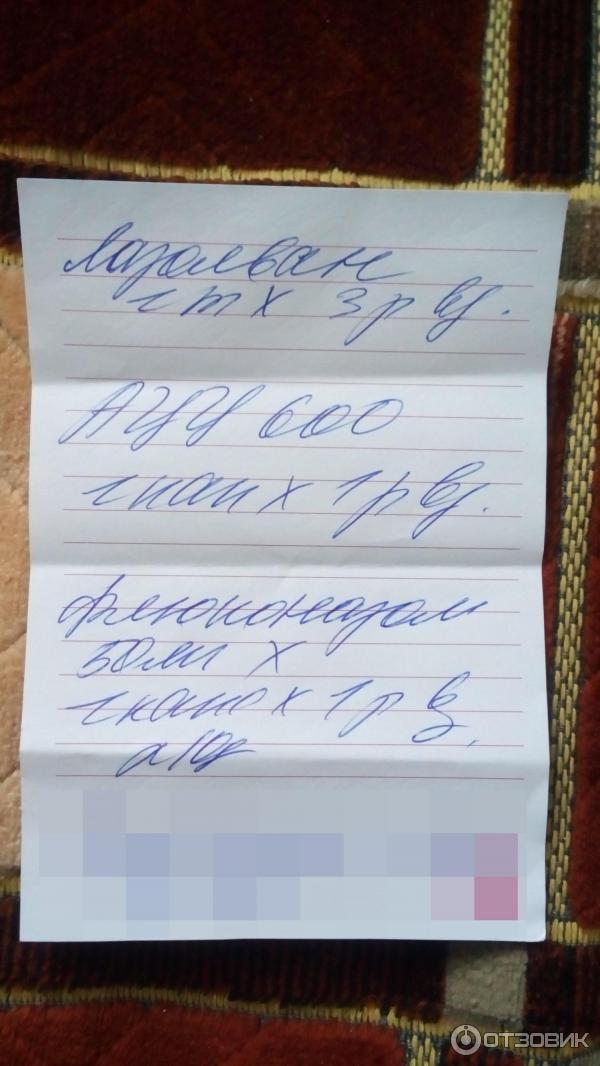 Лазолван
1 т х 3 р в д.
АЦЦ 600
1 кап х 1 р в д.
Флюконазол
50 мг х
1 капс х 1 р в д.
№10
ОТЗОВИК